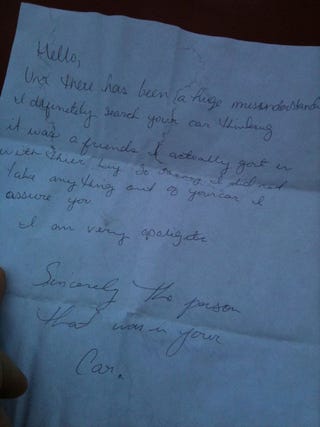 Hello,
there has been a huge misunderstandin
I definitely search your car thinking
it was a friends I actually got in
with their key So sorry I did not
take any thing out of your car I
assure you.
I am very
Sincerely the person
that was in your
Car.